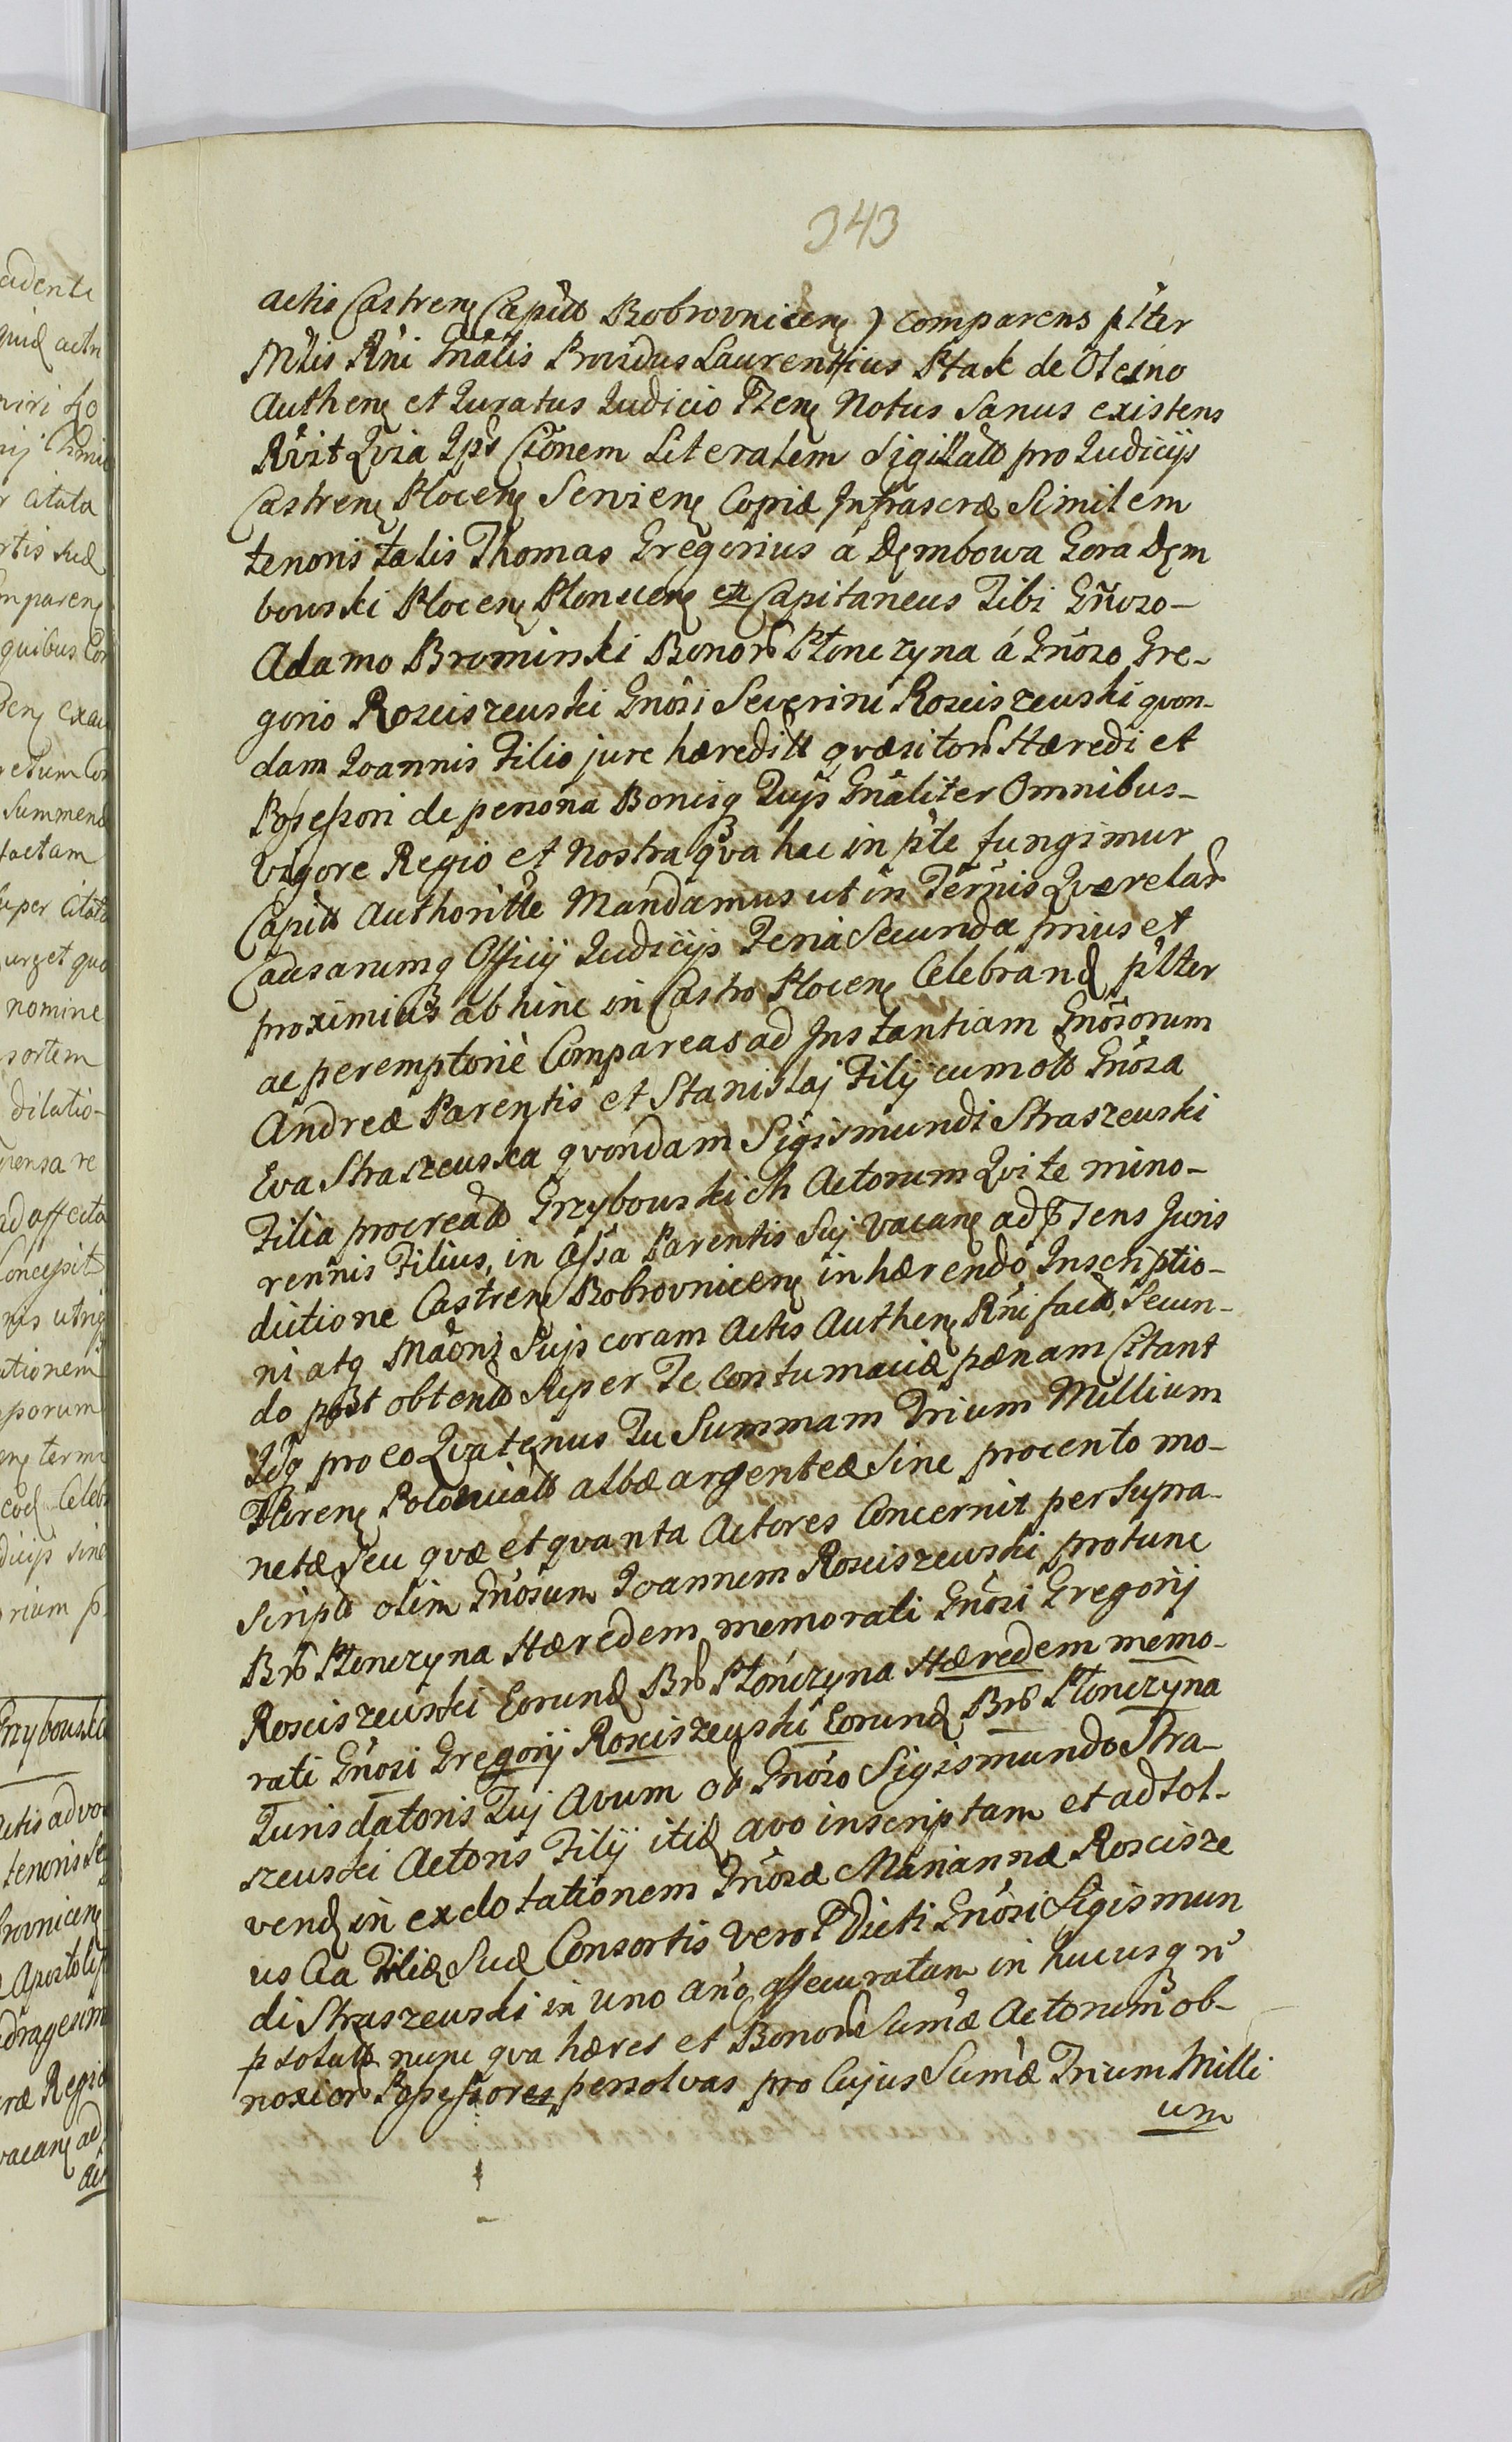 343
actis Castren Capitt Bobrovnicen) comparens plter
Mtlis Rni Gnalis Providus Laurentius Ptak de Olesno
Authen et Juratus Judicio Pzen Notus Sanus existens
Rvit Qvia Ips Cionem Literalem Sigillatt pro Judicijs
Castren Plocen Servien Copiæ Infrascræ Similem
tenoris talis Thomas Gregorius á Dębowa Gora Dęm
bowski Plocen Plonscen etc Capitaneus Tibi Gnoso-
Adamo Brominski Bonor Płonczyna á Gnoso Gre-
gorio Rosciszewski Gnosi Severini Rosciszewski qvon-
dam Joannis Filio jure hæreditt qvæsitor Hæredi et
Possessori de persona Bonisq Tuis Gnaliter Omnibus-
Vigore Regio et Nostra qva hac in pte fungimur
Capitt Authoritte Mandamus ut in Termis Qverelar
Causarumq Officij Judicijs Feria Secunda prius et
proximius ab hinc in Castro Plocen Celebrand plter
ac peremptorie Compareas ad Instantiam Gnosorum
Andreæ Parentis et Stanislaj Filij cum ott Gnosa
Eva Straszewska qvondam Sigismundi Straszewski
Filia procreatt Grzybowskich Actorum Qvi te mino-
rennis Filius, in assa Parentis Sui vacan ad pstens Juris
dictione Castren Bobrovnicen inhærendo Inscriptio-
ni atq Maoni Sujs coram Actis Authen Rni factt, Secun-
do post obtentt Super Te Contumaciæ pænam Citant
Idq pro eo Qvatenus Tu Summam Trium Millium
Floren Polonicatt albæ argenteæ Sine procento mo-
netæ Seu qvæ et qvanta Actores Concernit per Supra-
scriptt olim Gnosum Joannem Rosciszewski protunc
Brr Płonczyna Hæredem memorati Gnosi Gregorij
Rosciszewski Eorund Brr Płonczyna Hæredem memo-
rati Gnosi Gregorij Rosciszewski Eorund Brr Płonczyna
Jurisdatoris Tuj Avum ob Gnoso Sigismundo Stra-
szewski Actoris Filij itid avo inscriptam et ad sol-
vend in exdotationem Gnosæ Mariannæ Roscisze
us Cia Filiæ Suæ Consortis vero Pdicti Gnosi Sigismun
di Straszewski in uno ano assecuratam in hucusq n
p solutt nunc qva hæres et Bonor Sumæ Actorum ob-
noxior Possessores persolvas pro Cujus Sumæ Trium Milli
um